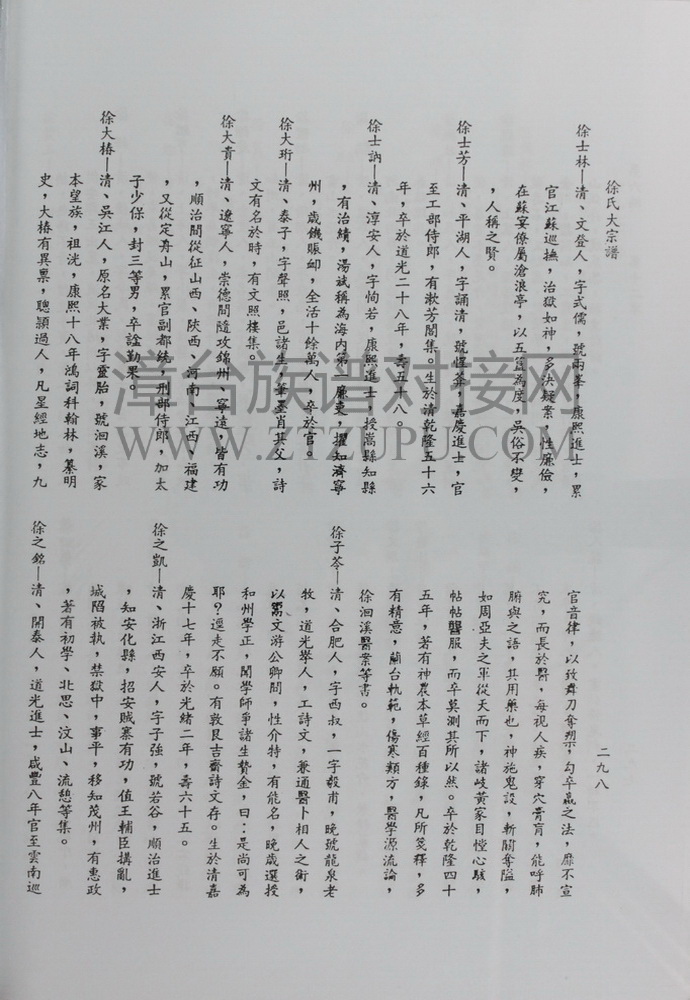 徐氏大宗譜
二九八
徐士林—清、文登人，字式儒，號兩峯，康熙進士，累
官江蘇巡撫，治獄如神，多決疑案，性廉儉，
在蘇宴僚屬滄浪亭，以五簋為度，吳俗不變，
，人稱之賢。
徐士芳—清、平湖人，字誦清，號惺葊，嘉慶進士，官
至工部侍郎，有漱芳閣集。生於清乾隆五十六
年，卒於道光二十八年，壽五十八。
徐士訥—清、淳安人，字恂若，康熙進士，授嵩縣知縣
，有治績，湯斌稱為海內第一廉吏，擢知濟寧
州，歲饑賑卹，全活十餘萬人，卒於官。
徐大珩—清、泰子，字聲照，邑諸生，筆墨肖其父，詩
文有名於時，有文照樓集。
徐大貴—清、遼寧人，崇德間隨攻錦州、寧遠，皆有功
，順治間從征山西、陝西、河南、江西、福建
，又從定舟山，累官副都統，刑部侍郎，加太
子少保，封三等男，卒諡勤果。
徐大椿—清、吳江人，原名大業，字靈胎，號洄溪，家
本望族，祖洸，康熙十八年鴻詞科翰林，纂明
史，大椿有異稟，聰潁過人，凡星經地志，九
官音律，以致舞刀奪槊，勾卒嬴之法，靡不宣
究，而長於醫，每視人疾，穿穴膏肓，能呼肺
腑與之語，其用藥也，神施鬼設，斬關奪隘，
如周亞夫之軍從天而下，諸岐黃家目憆心駭，
帖帖讋服，而卒莫測其所以然。卒於乾隆四十
五年，著有神農本草經百種錄，凡所箋釋，多
有精意，蘭台軌範，傷寒類方，醫學源流論，
徐洄溪醫案等書。
徐子苓—清、合肥人，字西叔，一字毅甫，晚號龍泉老
牧，道光舉人，工詩文，兼通醫卜相人之術，
以鬻文游公卿間，性介特，有能名，晚歲選授
和州學正，聞學師爭諸生贄金，曰：是尚可為
耶？逕走不願。有敦艮吉齋詩文存。生於清嘉
慶十七年，卒於光緒二年，壽六十五。
徐之凱—清、浙江西安人，字子強，號若谷，順治進士
，知安化縣，招安賊寨有功，值王輔臣搆亂，
城陷被執，禁獄中，事平，移知茂州，有惠政
，著有初學、北思、汶山、流憩等集。
徐之銘—清、開泰人，道光進士，咸豐八年官至雲南巡